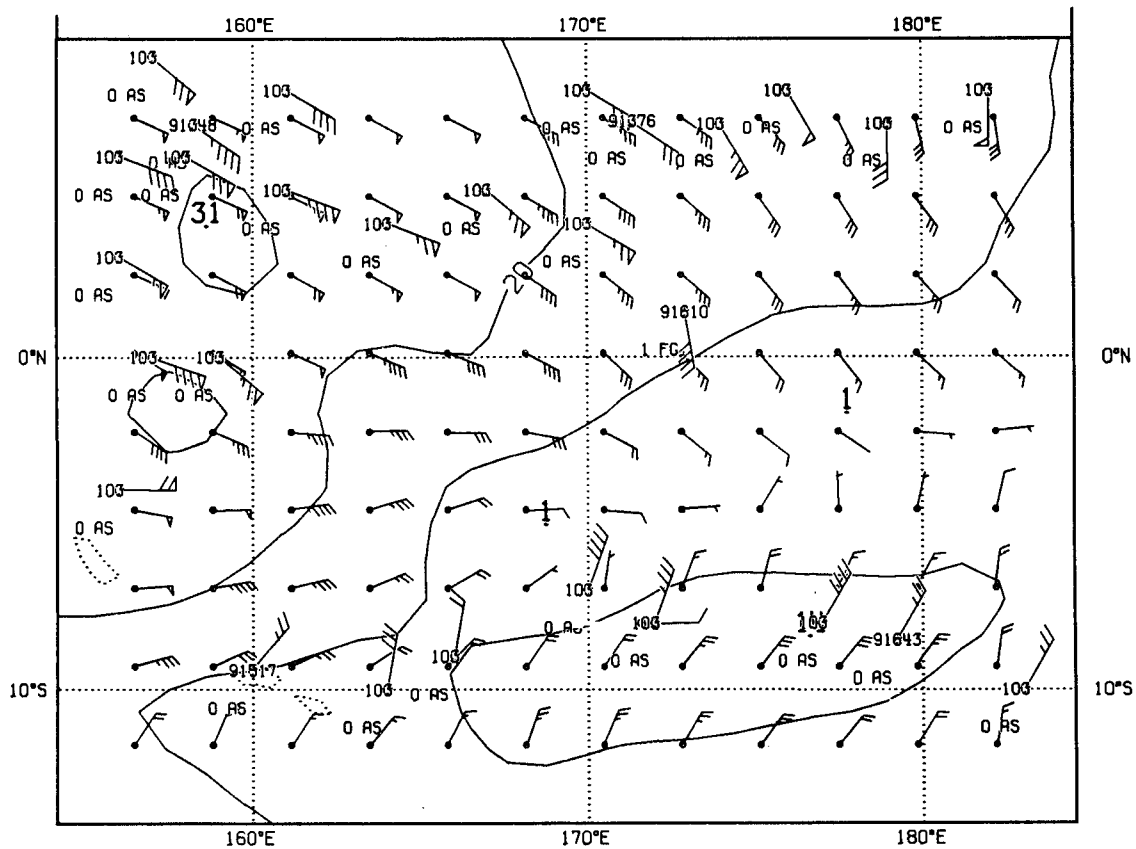 160°E 170°E 180°E
103 103 103 103 103
0 AS
91348 0 AS 0 AS 91376 103 0 AS 103 0 AS
103 103 0 AS 0 AS 0 AS
0 AS 0 AS 103 103
31 0 AS 103 0 AS 103
103 0 AS 0 AS
0 AS 20
91610
0°N 103 103 1 FG 0°N
0 AS 0 AS 1
103
0 AS 1
103
103 103 91643
91517 103
0 AS 0 AS 0 AS
10°S 0 AS 103 0 AS 103 10°S
0 AS 0 AS 0 AS
160°E 170°E 180°E